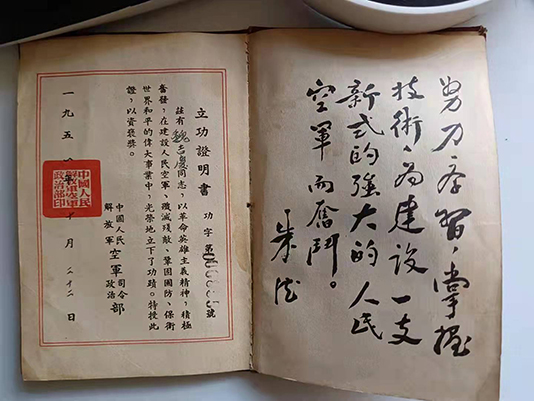 努力学習，掌握
技術，為建設一支
新式的強大的人民
空軍而奮鬥。
朱德
立功證明書
功字第號
茲有魏吉慶同志，以革命英雄主義精神，積極
奮發，在建設人民空軍、殲滅殘敵、鞏固國防、保衛
世界和平的偉大事業中，光榮地立下了功蹟。特授此
證，以資褒獎。
中國人民
解放軍
空軍
司令
政治
部
一九五一年十月二十二日
中國人民
解放軍空軍
政治部印